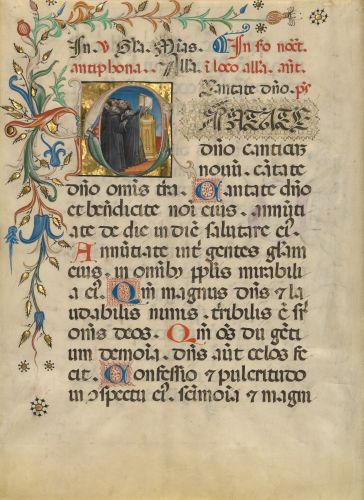 antiphona. Alla. i loco alla. ant.
Cantate dno. ps
dno canticū
nouū. cātate
dño omīs tra. Cantate dño
et bendicite noi eius. annūti
ate de die in diē salutare ei.
Annūtiate int gentes glam
eius. in omīby pplis mirabili
a ei. Qm magnus dns ⁊ la
udabilis nimis. tribilis ē sr
omīs deos. Qm oēs dij gēti
um demoīa. dns aūt celos fe
cit. Confessio ⁊ pulcritudo
in ospectu ei. scimoīa ⁊ magni